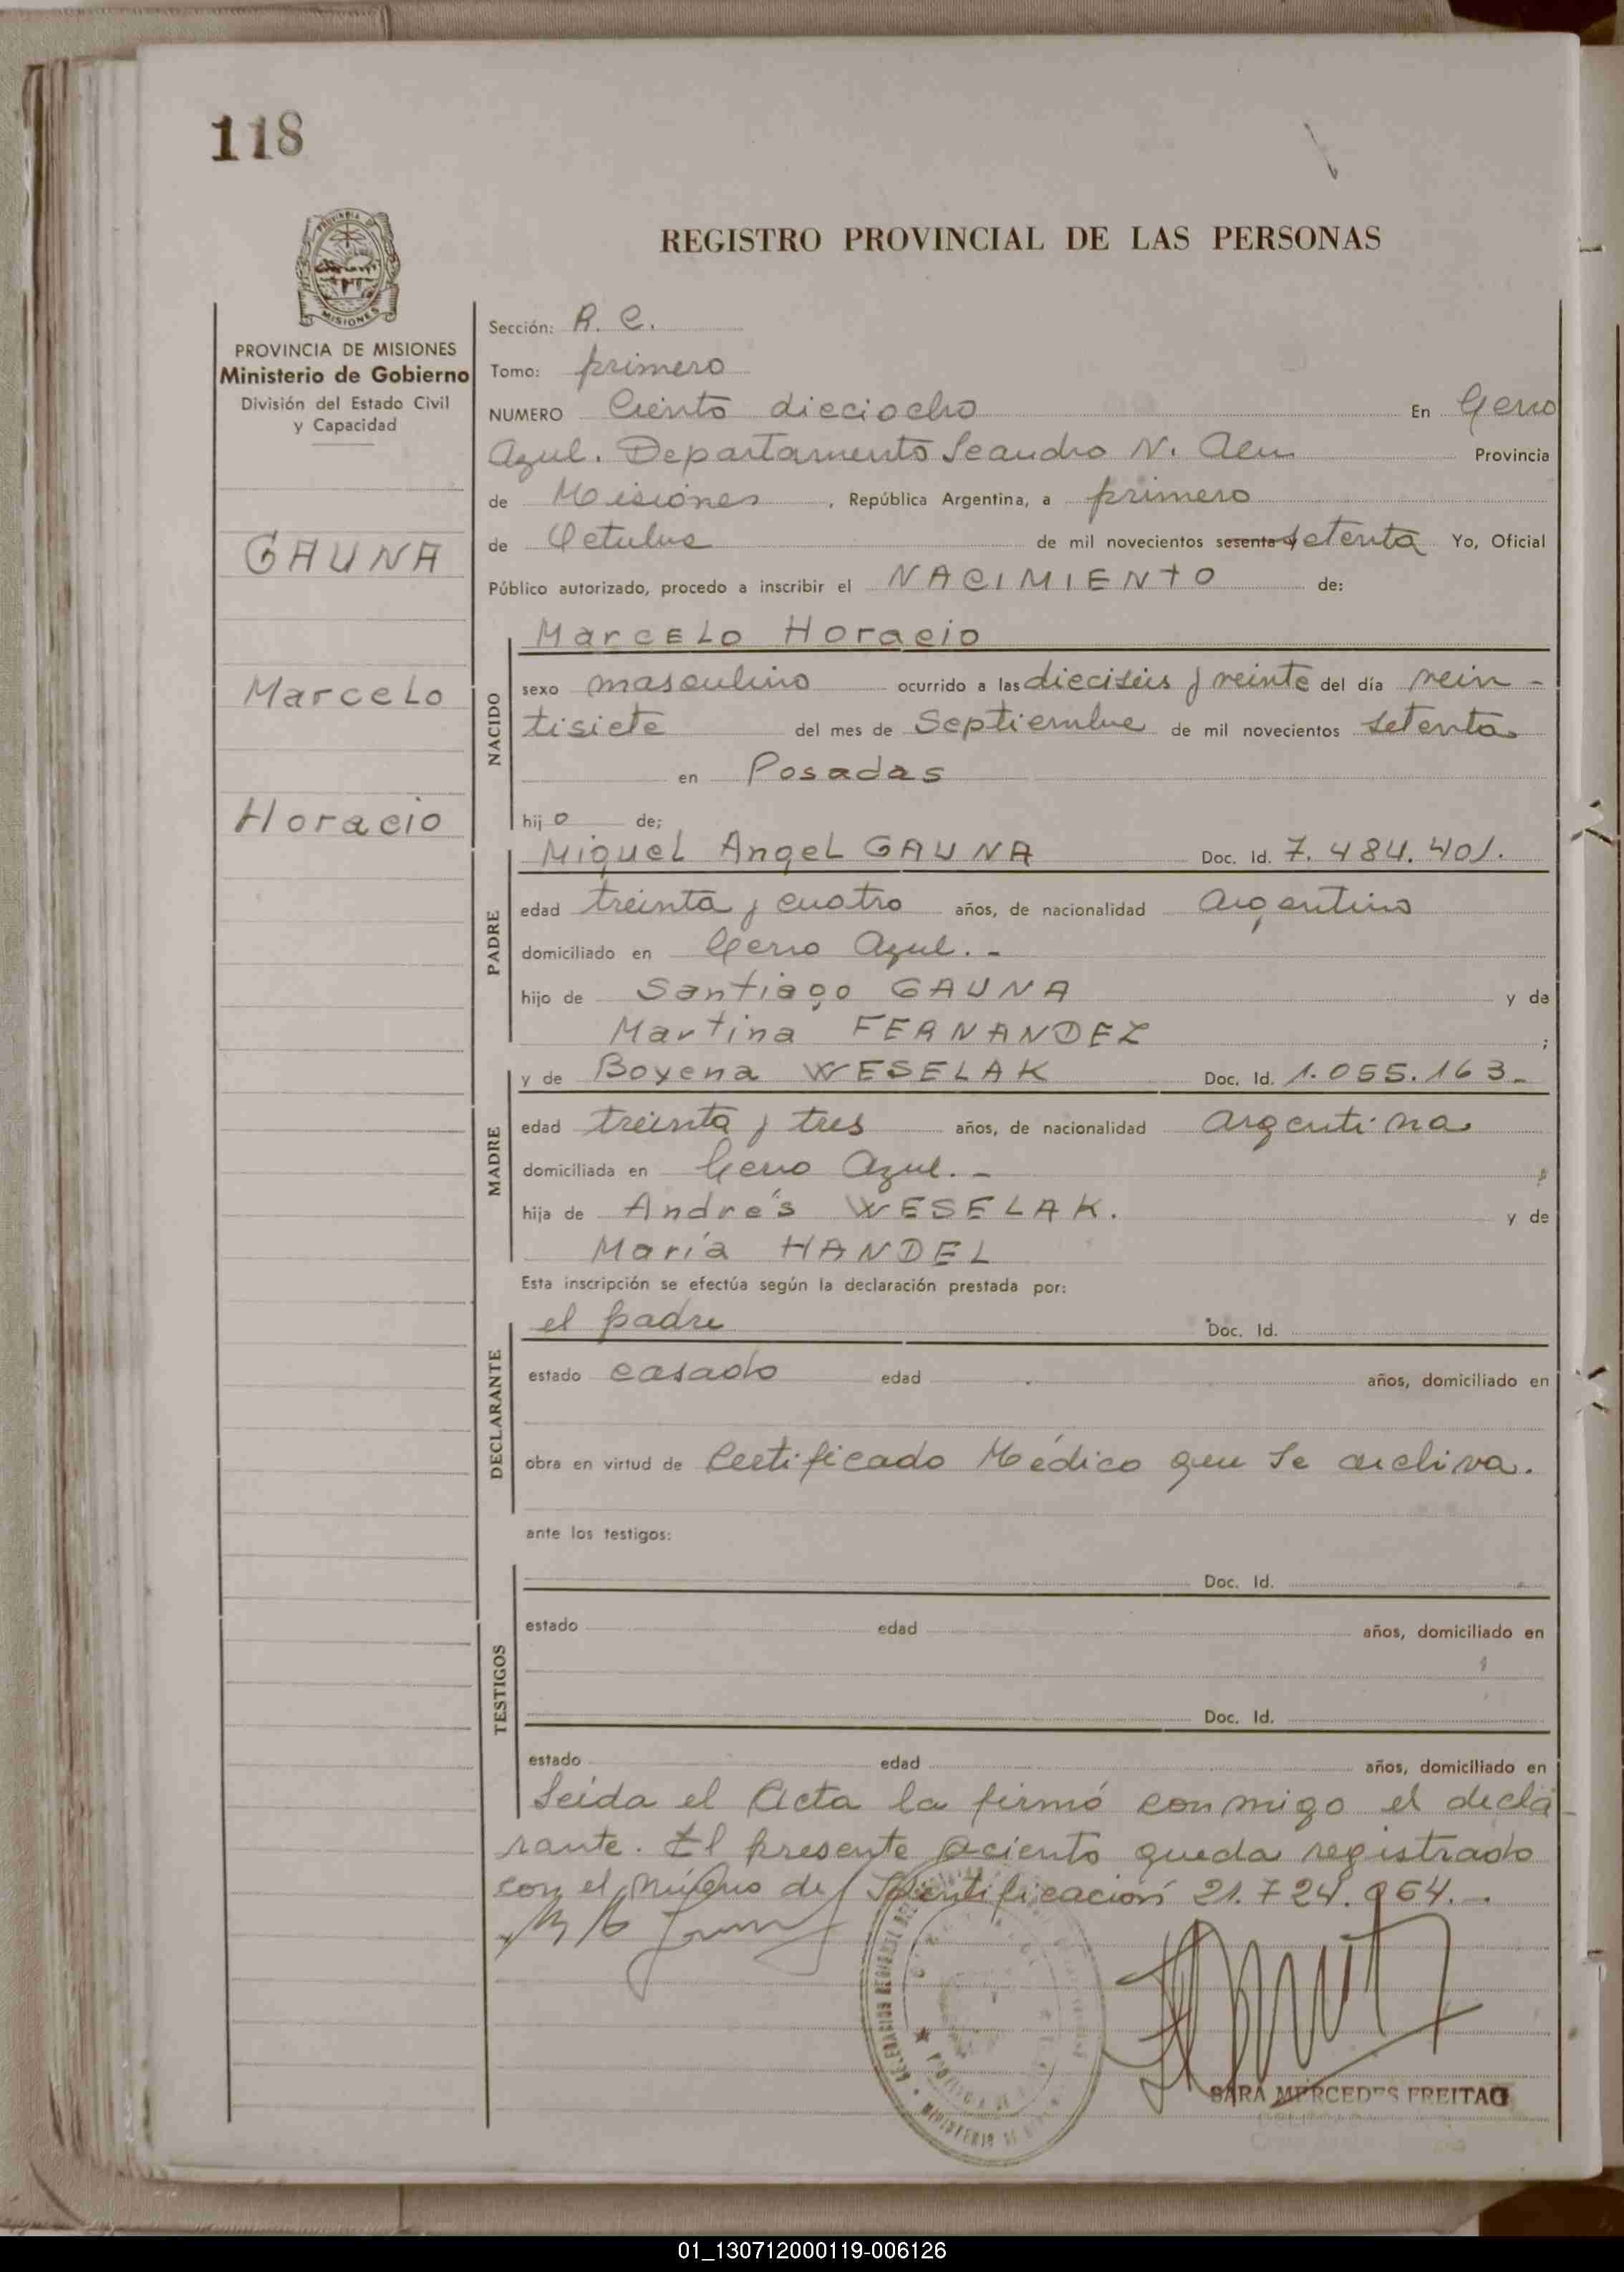 118
REGISTRO PROVINCIAL DE LAS PERSONAS
PROVINCIA DE
MISIONES
PROVINCIA DE MISIONES
Ministerio de Gobierno
División del Estado Civil
y Capacidad
GAUNA
Marcelo
Horacio
Sección: R. C.
Tomo: primero
NUMERO Ciento dieciocho En Cerro
Azul. Departamento Leandro N. Alem Provincia
de Misiones, República Argentina, a primero
de Octubre de mil novecientos sesenta setenta Yo, Oficial
Público autorizado, procedo a inscribir el NACIMIENTO de:
NACIDO
Marcelo Horacio
sexo masculino ocurrido a las dieciseis y veinte del día vein-
tisiete del mes de Septiembre de mil novecientos setenta
en Posadas
hijo de;
PADRE
Miguel Angel GAUNA Doc. Id. 7.484.401.
edad treinta y cuatro años, de nacionalidad Argentino
domiciliado en Cerro Azul.-
hijo de Santiago GAUNA y de
Martina FERNANDEZ ;
MADRE
y de Boyena WESELAK Doc. Id. 1.055.163-
edad treinta y tres años, de nacionalidad argentina
domiciliada en Cerro Azul.-
hija de Andrés WESELAK. y de
María HANDEL
Esta inscripción se efectúa según la declaración prestada por:
DECLARANTE
el padre Doc. Id.
estado casado edad años, domiciliado en
obra en virtud de Certificado Médico que se archiva.
ante los testigos:
TESTIGOS
Doc. Id.
estado edad años, domiciliado en
Doc. Id.
estado edad años, domiciliado en
Leida el Acta la firmó conmigo el decla-
rante. El presente aciento queda registrado
con el número de Identificación 21.724.964.-
SARA MERCEDES FREITAG
01_130712000119-006126